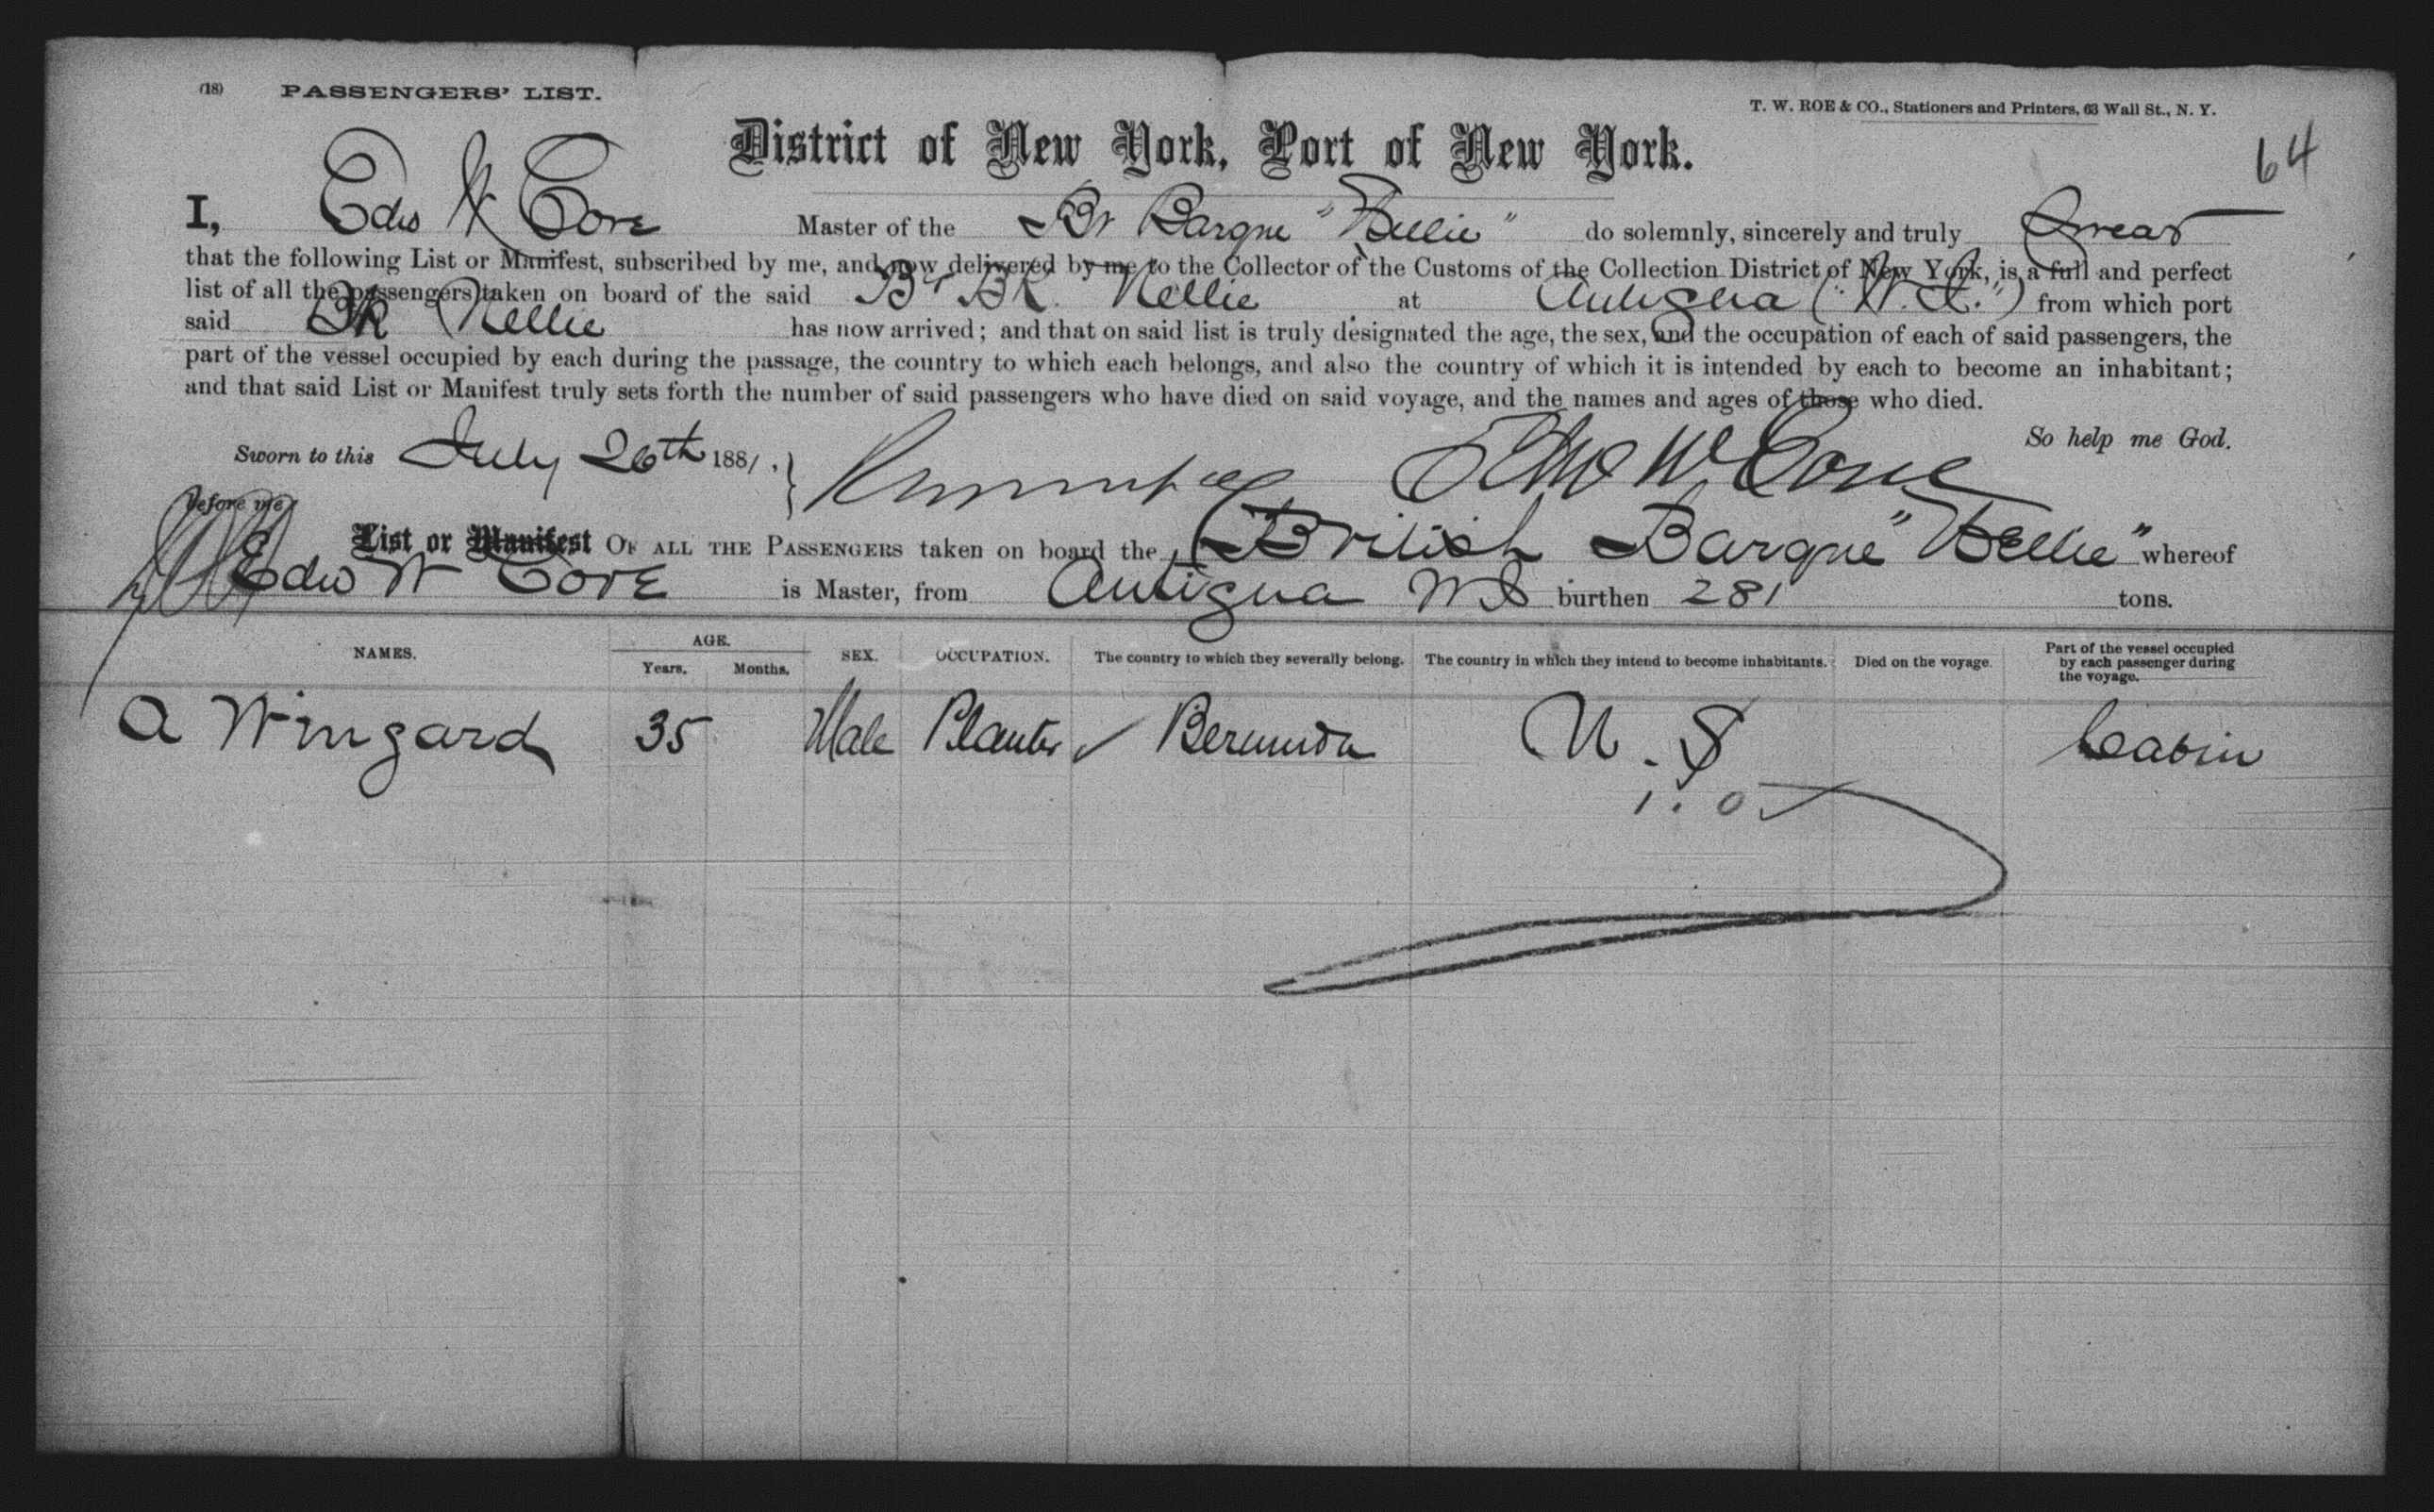 (18) PASSENGERS' LIST.
T. W. ROE & CO., Stationers and Printers, 63 Wall St., N. Y.
64
District of New York, Port of New York.
I, Edw W Cove Master of the Br Barque "Nellie" do solemnly, sincerely and truly Swear
that the following List or Manifest, subscribed by me, and now delivered by me to the Collector of the Customs of the Collection District of New York, is a full and perfect
list of all the passengers taken on board of the said Br BK Nellie at Antigua ("W. I.") from which port
said Bk Nellie has now arrived; and that on said list is truly designated the age, the sex, and the occupation of each of said passengers, the
part of the vessel occupied by each during the passage, the country to which each belongs, and also the country of which it is intended by each to become an inhabitant;
and that said List or Manifest truly sets forth the number of said passengers who have died on said voyage, and the names and ages of those who died.
So help me God.
Sworn to this July 26th 1881. Edw W Cove
before me
List or Manifest OF ALL THE PASSENGERS taken on board the British Barque "Nellie" whereof
Edw W Cove is Master, from Antigua W I burthen 281 tons.
NAMES. AGE. Years. Months. SEX. OCCUPATION. The country to which they severally belong. The country in which they intend to become inhabitants. Died on the voyage. Part of the vessel occupied by each passenger during the voyage.
A Wingard 35 Male Planter ✓ Bermuda U. S Cabin